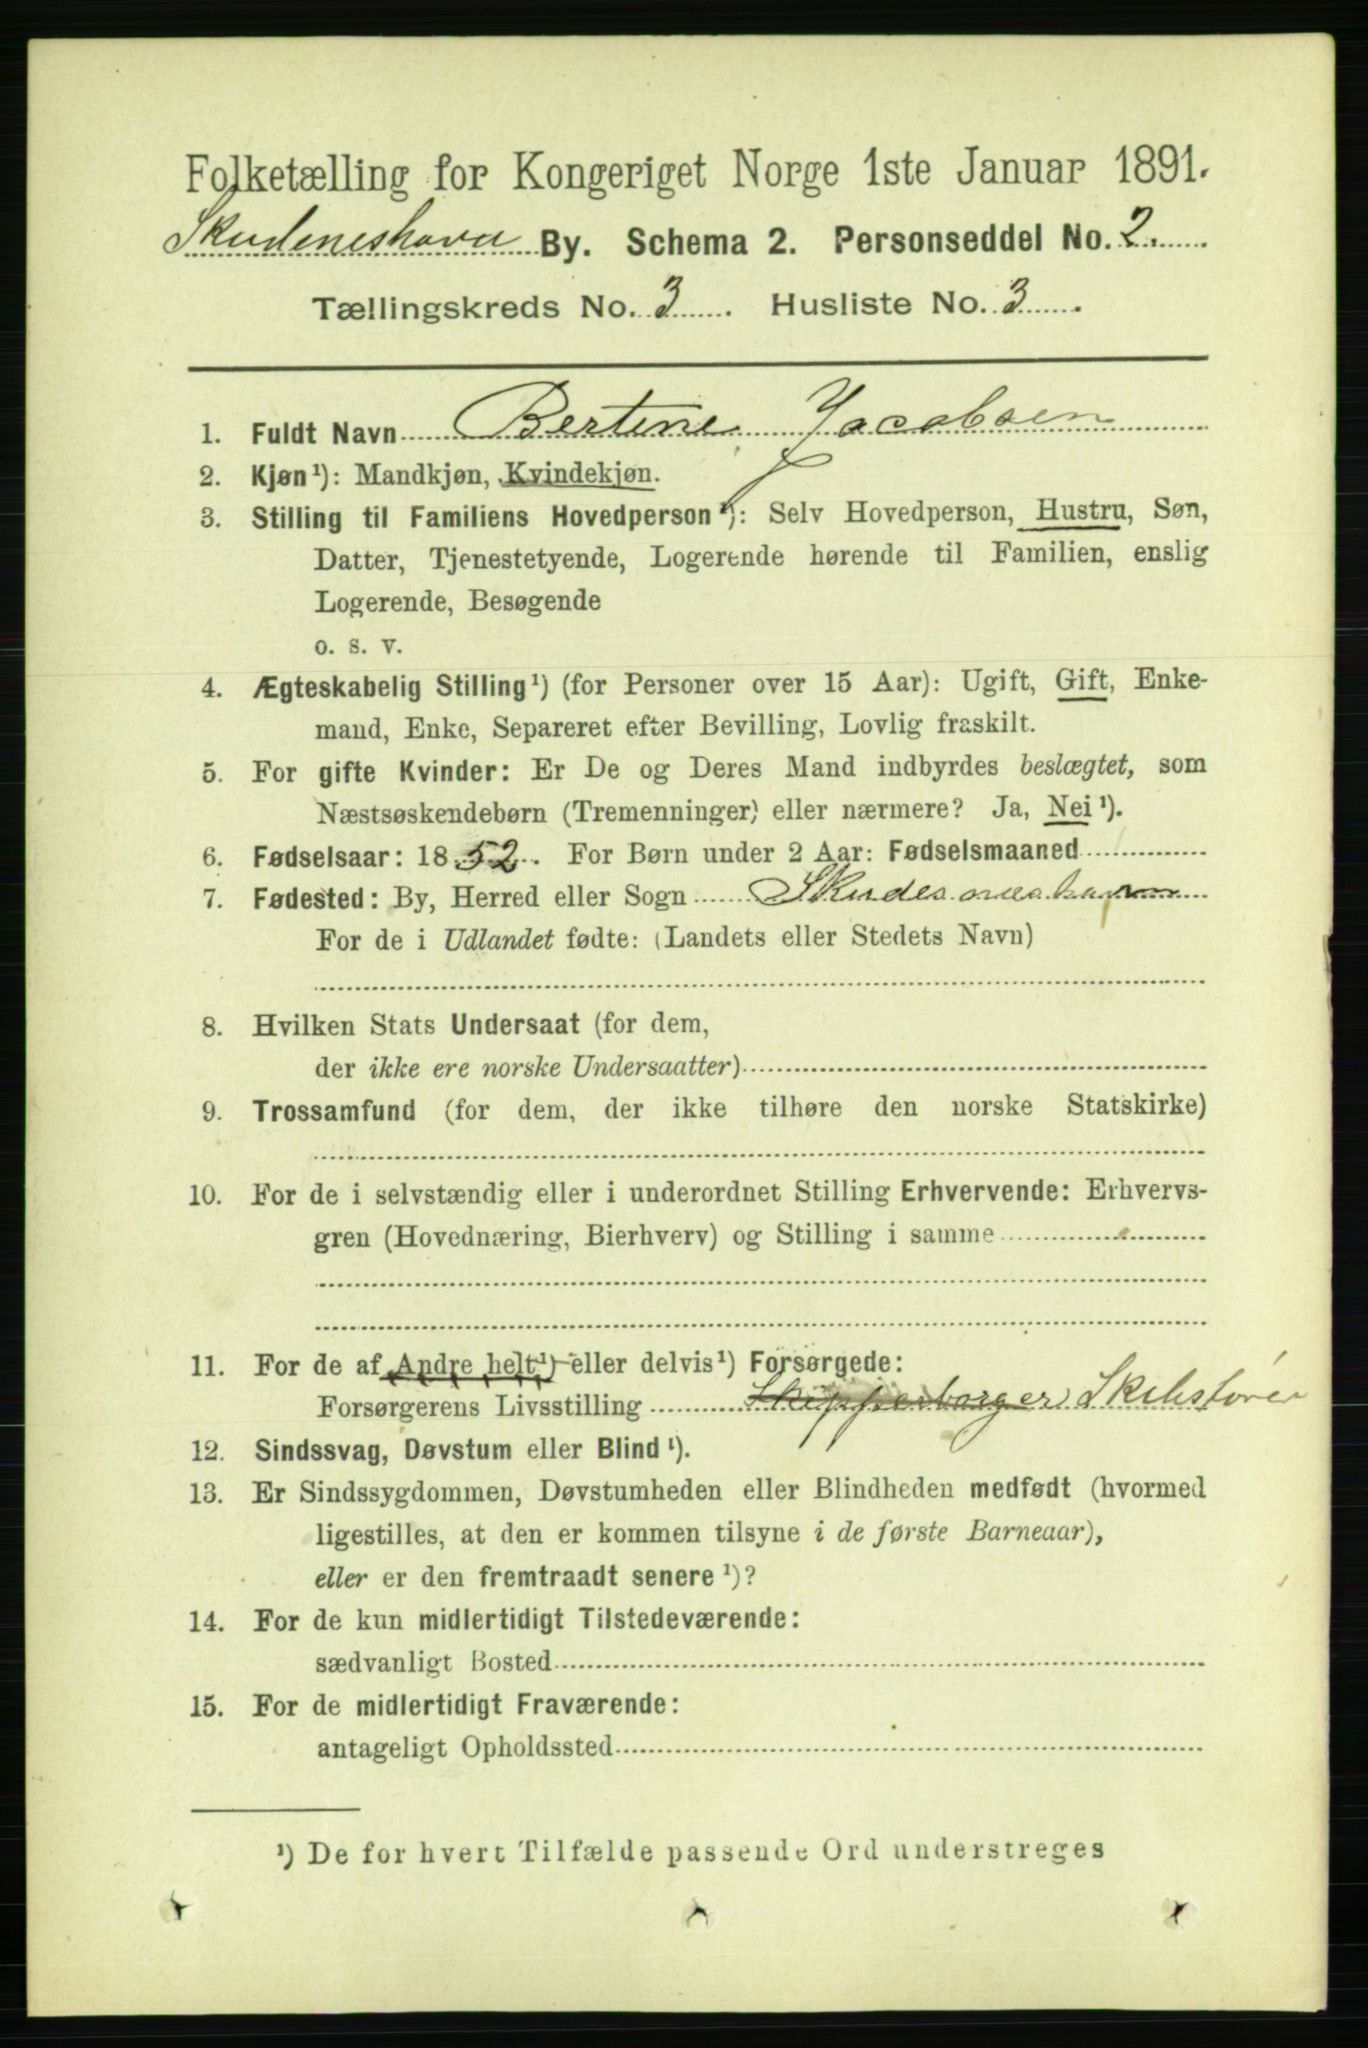 Folketælling for Kongeriget Norge 1ste Januar 1891.
Skudeneshavn By. Schema 2. Personseddel No. 2.
Tællingskreds No. 3. Husliste No. 3.
1. Fuldt Navn Bertine Jacobsen
2. Kjøn¹): Mandkjøn, Kvindekjøn.
3. Stilling til Familiens Hovedperson¹): Selv Hovedperson, Hustru, Søn,
Datter, Tjenestetyende, Logerende hørende til Familien, enslig
Logerende, Besøgende
o. s. v.
4. Ægteskabelig Stilling¹) (for Personer over 15 Aar): Ugift, Gift, Enke-
mand, Enke, Separeret efter Bevilling, Lovlig fraskilt.
5. For gifte Kvinder: Er De og Deres Mand indbyrdes beslægtet, som
Næstsøskendebørn (Tremenninger) eller nærmere? Ja, Nei¹).
6. Fødselsaar: 1852. For Børn under 2 Aar: Fødselsmaaned
7. Fødested: By, Herred eller Sogn Skudesnæshavn
For de i Udlandet fødte: (Landets eller Stedets Navn)
8. Hvilken Stats Undersaat (for dem,
der ikke ere norske Undersaatter)
9. Trossamfund (for dem, der ikke tilhøre den norske Statskirke)
10. For de i selvstændig eller i underordnet Stilling Erhvervende: Erhvervs-
gren (Hovednæring, Bierhverv) og Stilling i samme
11. For de af Andre helt¹) eller delvis¹) Forsørgede:
Forsørgerens Livsstilling Skipperborger Skibsfører
12. Sindssvag, Døvstum eller Blind¹).
13. Er Sindssygdommen, Døvstumheden eller Blindheden medfødt (hvormed
ligestilles, at den er kommen tilsyne i de første Barneaar),
eller er den fremtraadt senere¹)?
14. For de kun midlertidigt Tilstedeværende:
sædvanligt Bosted
15. For de midlertidigt Fraværende:
antageligt Opholdssted
¹) De for hvert Tilfælde passende Ord understreges